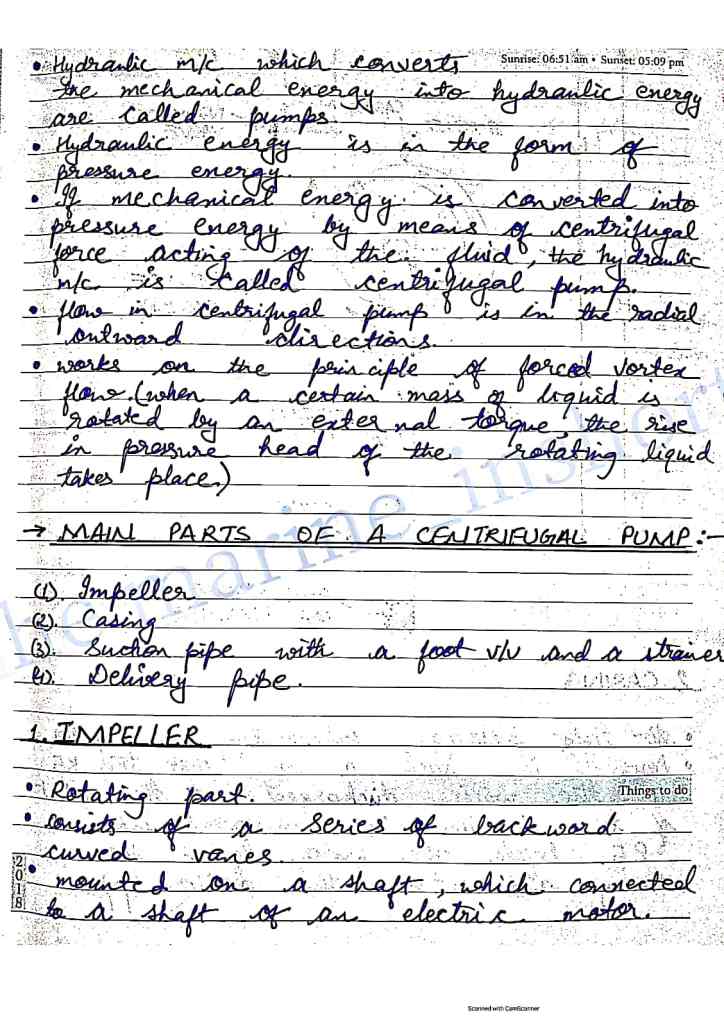 Sunrise: 06:51 am • Sunset: 05:09 pm
• Hydraulic m/c which converts
the mechanical energy into hydraulic energy
are called pumps.
• Hydraulic energy is in the form of
pressure energy.
• If mechanical energy is converted into
pressure energy by means of centrifugal
force acting of the fluid, the hydraulic
m/c is called centrifugal pump.
• flow in centrifugal pump is in the radial
outward directions.
• works on the principle of forced vortex
flow. (when a certain mass of liquid is
rotated by an external torque, the rise
in pressure head of the rotating liquid
takes place.)
→ MAIN PARTS OF A CENTRIFUGAL PUMP :-
(1). Impeller
(2). Casing
(3). Suction pipe with a foot v/v and a strainer
4). Delivery pipe.
1. IMPELLER
Things to do
• Rotating part.
• consists of a series of backward
curved vanes.
• mounted on a shaft, which connected
to a shaft of an electric motor.
2018
Scanned with CamScanner